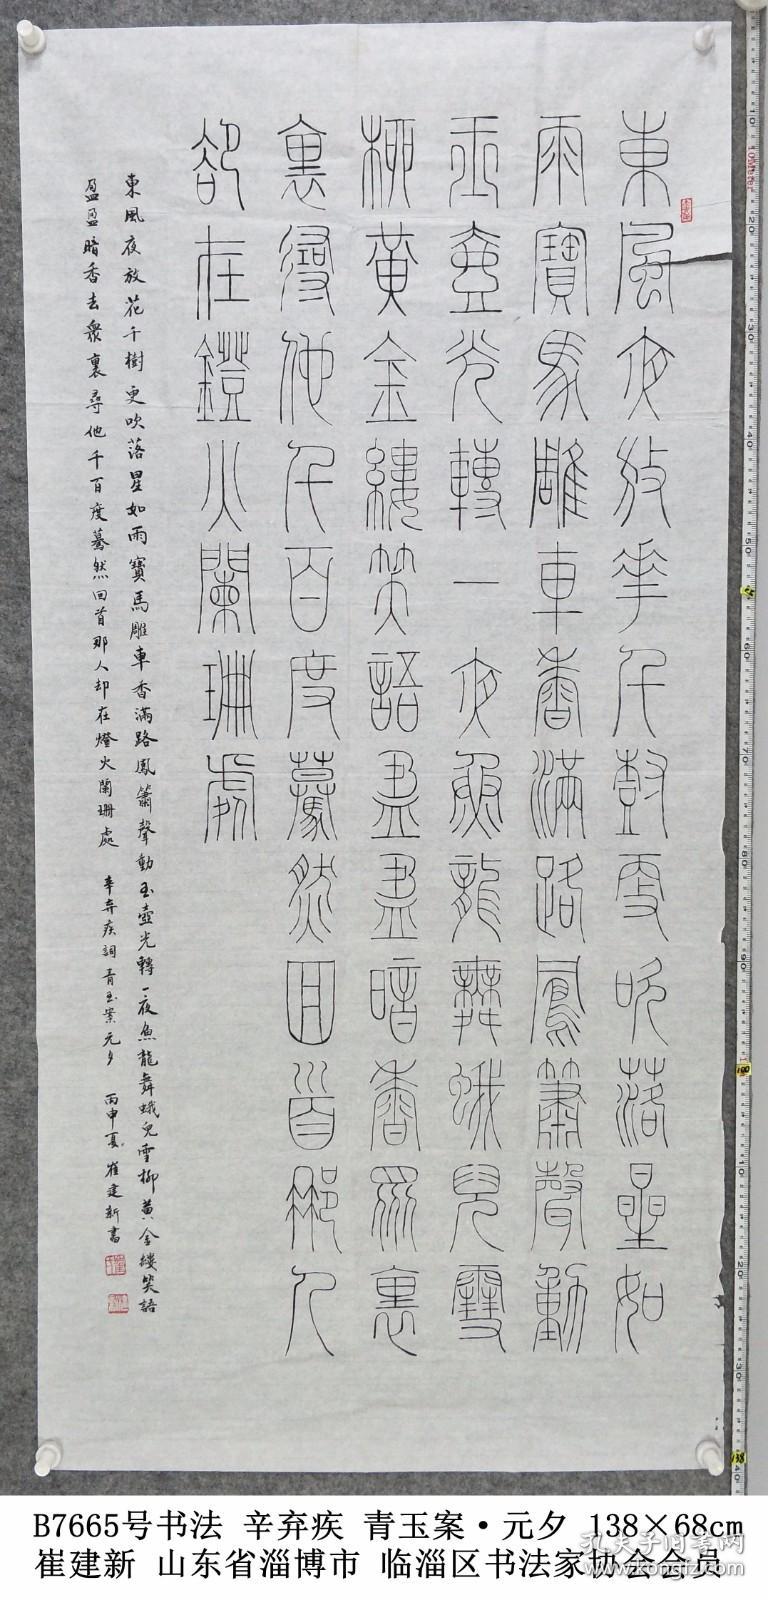 東風夜放花千樹更吹落星如
雨寶馬雕車香滿路鳳簫聲動
玉壺光轉一夜魚龍舞蛾兒雪
柳黃金縷笑語盈盈暗香眾裏
裏尋他千百度驀然回首那人
卻在鐙火闌珊處
東風夜放花千樹更吹落星如雨寶馬雕車香滿路鳳簫聲動玉壺光轉一夜魚龍舞蛾兒雪柳黄金縷笑語
盈盈暗香去衆裏尋他千百度驀然回首那人却在燈火闌珊處 辛弃疾詞青玉案元夕 丙申夏崔建新書
B7665号书法 辛弃疾 青玉案·元夕 138×68cm
崔建新 山东省淄博市 临淄区书法家协会会员
孔夫子旧书网
www.kongfz.com